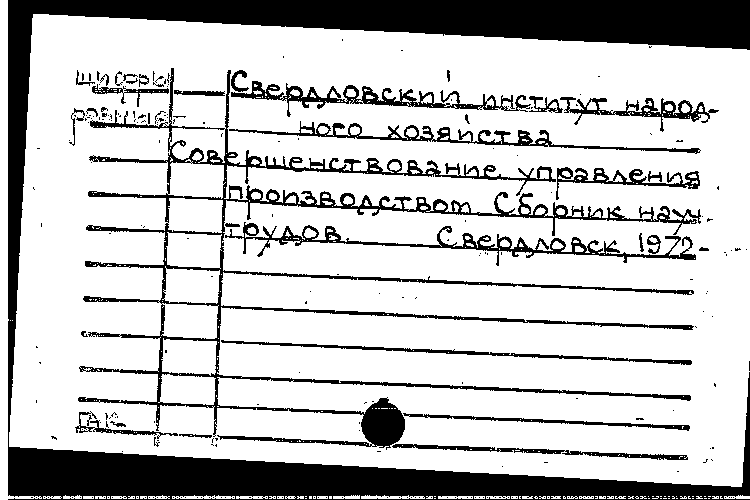 шифры
Свердловский институт народ-
ного хозяйства
Совершенствование управления
производством Сборник науч.
трудов. Свердловск, 1972-